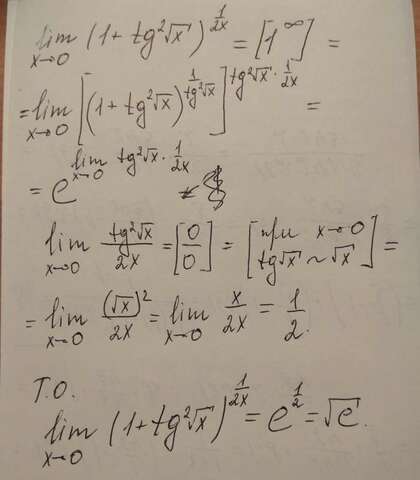 lim x→0 (1 + tg²√x)^(1/2x) = [1^∞] =
= lim x→0 [(1 + tg²√x)^(1/tg²√x)]^(tg²√x · 1/2x) =
= e^(lim x→0 tg²√x · 1/2x)
lim x→0 tg²√x/2x = [0/0] = [при x→0 tg√x ~ √x] =
= lim x→0 (√x)²/2x = lim x→0 x/2x = 1/2.
Т.О.
lim x→0 (1 + tg²√x)^(1/2x) = e^(1/2) = √e.